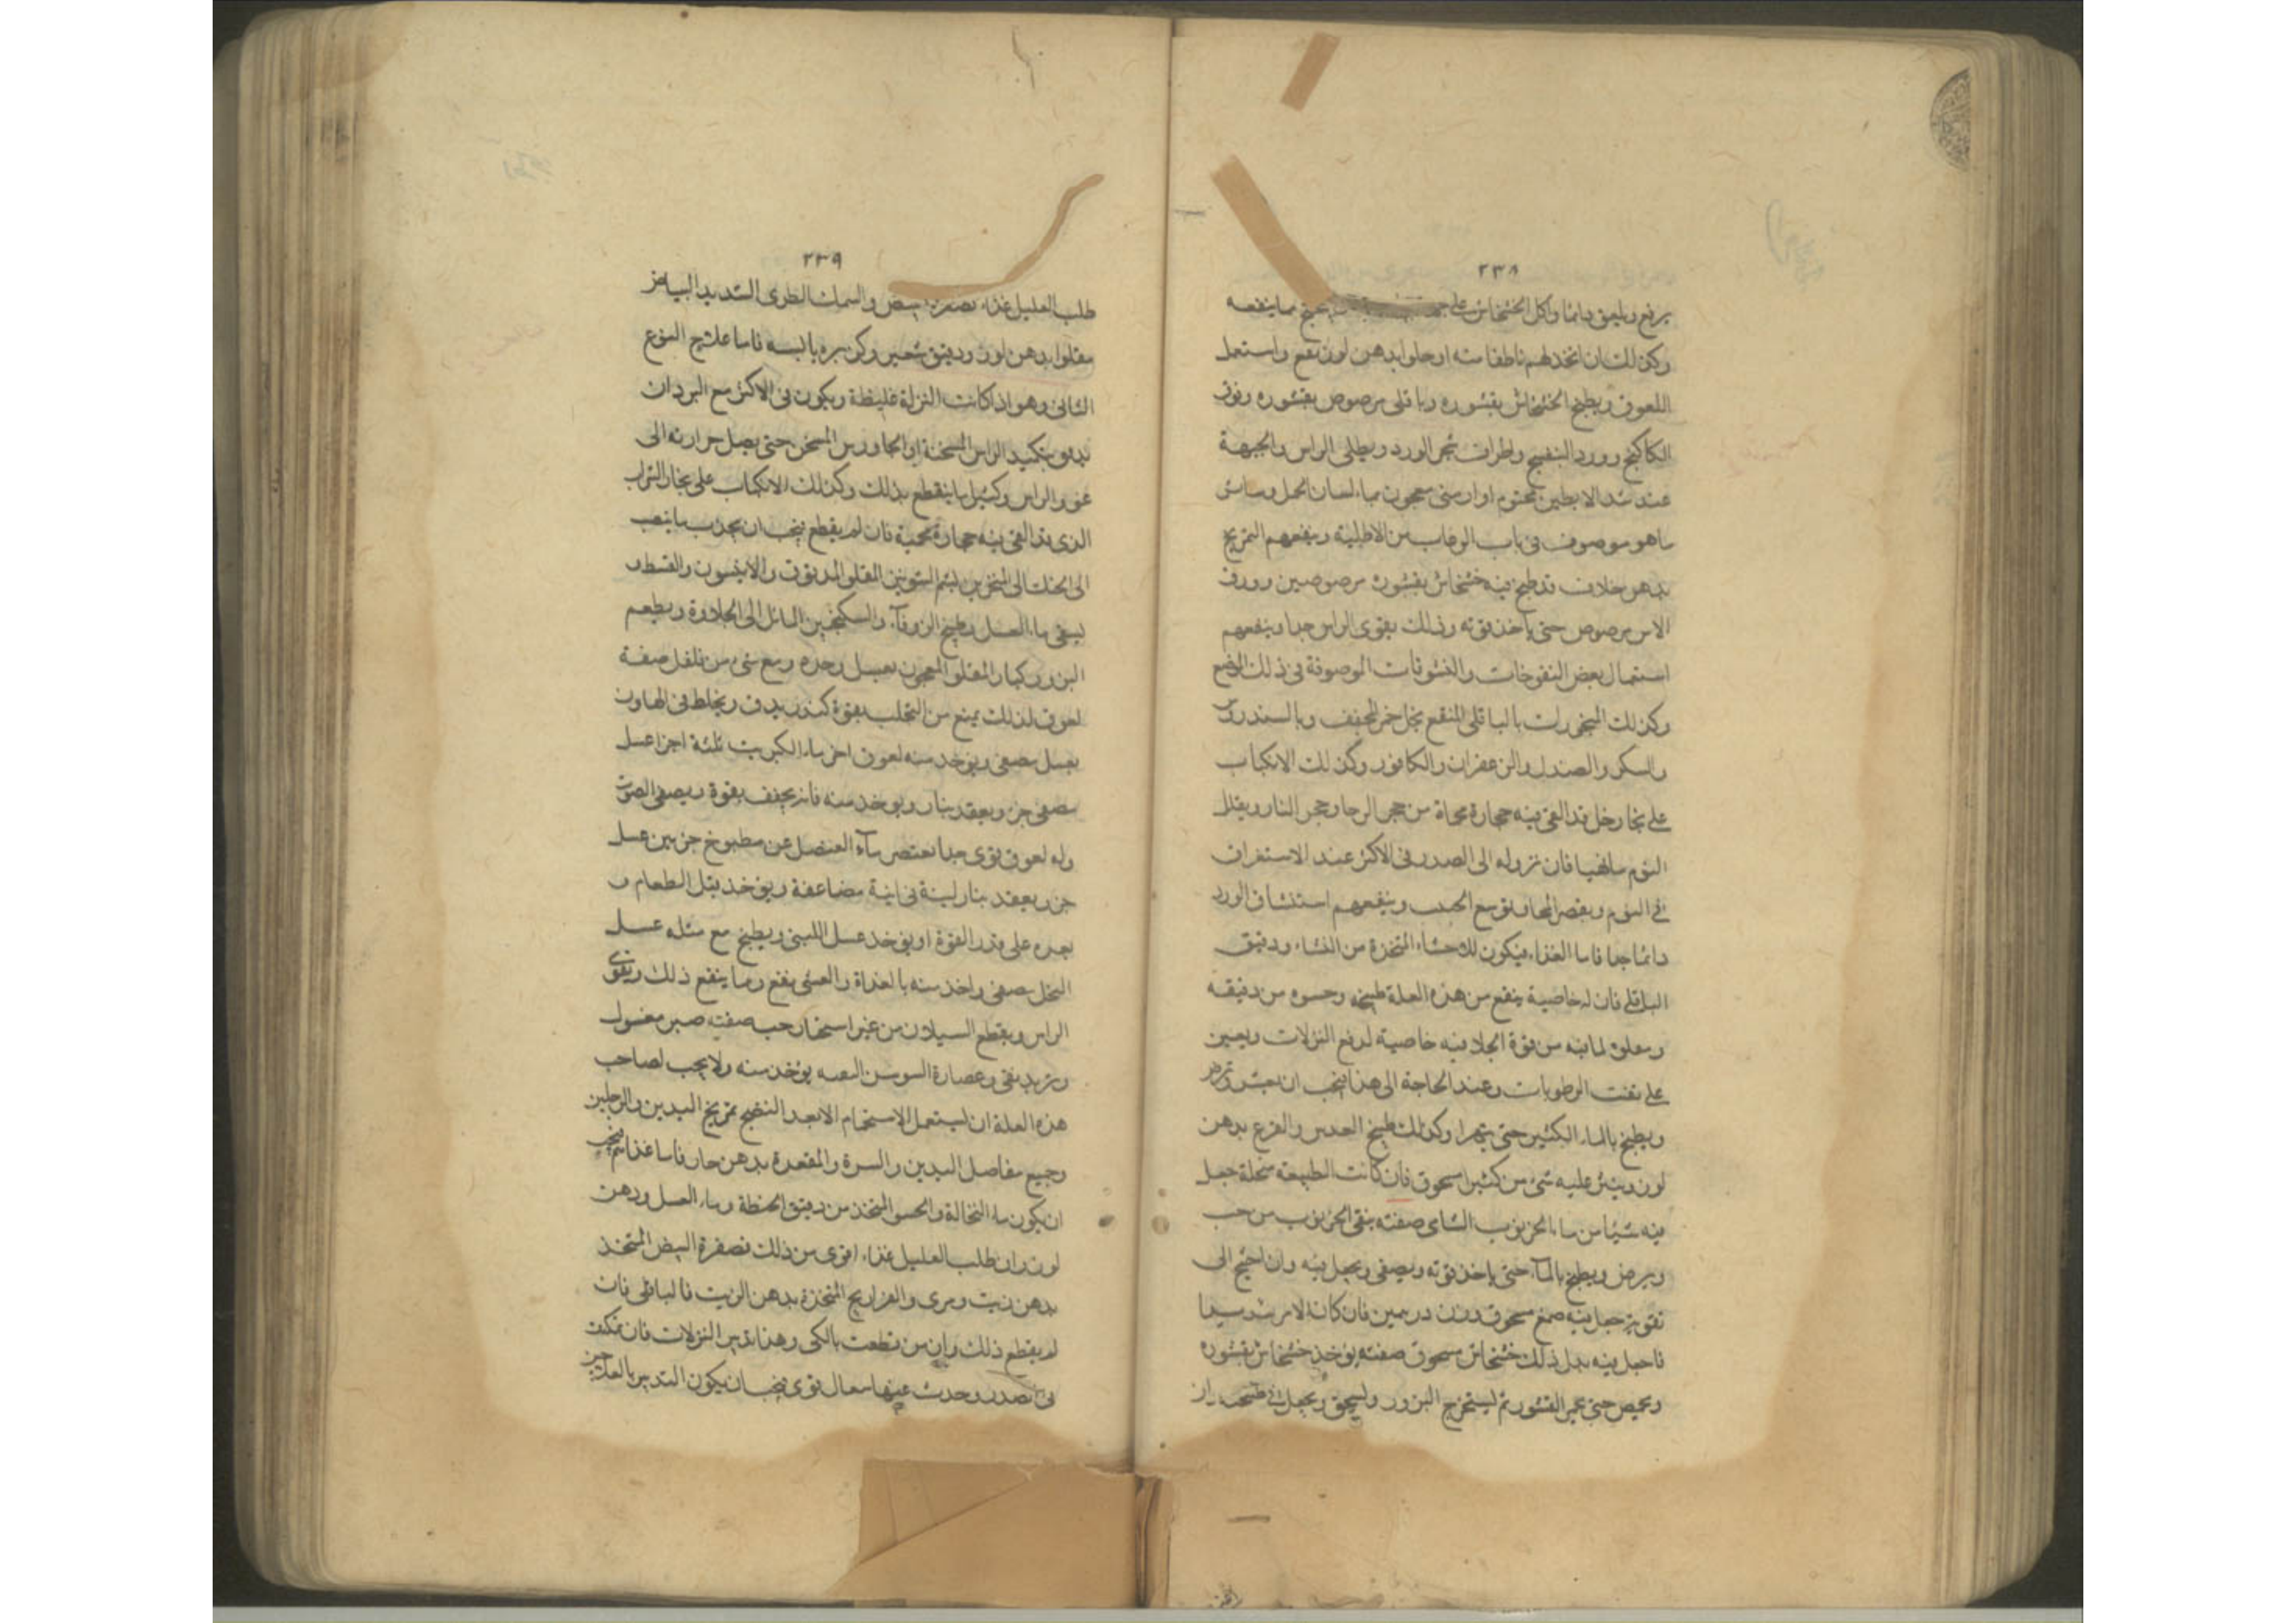 ٢٣٨
يرفع ويلعق دائما واكل الخشخاش على مما ينفعه
وكذلك ان اتخذ لهم ناطفا منه او حلوا بدهن لوز نفع واستعمل
اللعوق ويطبخ الخشخاش بقشوره وباقلى مرصوص بقشوره وورق
الكاكنج وورد البنفسج واطراف شجر الورد ويطلى الراس والجبهة
عند شد الابطين مختوم او ارمنى معجون بماء لسان الحمل وسائر
ما هو موصوف فى باب الرعاف من الاطلية وينفعهم التمريخ
بدهن خلاف قد طبخ فيه خشخاش بقشوره مرصوصين وورق
الاس مرصوص حتى ياخذ قوته وذلك يقوى الراس جدا وينفعهم
استعمال بعض النفوخات والنشوقات الموصوفة فى ذلك الموضع
وكذلك البخورات بالباقلى المنقع بخل خمر المجفف وبالسندروس
والسكر والصندل والزعفران والكافور وكذلك الانكباب
على بخار خل قد القى فيه حجارة محماة من حجر الرحا وحجر النار ويقلل
النوم ما تهيا فان نزوله الى الصدر فى الاكثر عند الاستغراق
فى النوم وينفعهم استنشاق الورد
دائما جدا فاما الغذاء فيكون للاحشاء المتخذة من النشاء ودقيق
الباقلى فان له خاصية ينفع من هذه العلة طبيخه وحسوه من دقيقه
لما فيه من قوة الجلا فيه خاصية لدفع النزلات ويعين
على نفث الرطوبات وعند الحاجة الى هذا فيجب ان يقشر
ويطبخ بالماء الكثير حتى يتهرا وكذلك طبيخ العدس والقرع بدهن
لوز ويذر عليه شىء من كثيرا مسحوق فان كانت الطبيعة منحلة جعل
فيه شيئا من ماء الخرنوب الشامى صفته ينقى الخرنوب من حب
ويرض ويطبخ بالمآء حتى ياخذ قوته ويصفى ويجعل فيه وان احتيج الى
تقويته جعل فيه صمغ مسحوق وزن درهمين فان كان الامر
فاجعل فيه بدل ذلك خشخاش مسحوق صفته يوخذ خشخاش بقشوره
ويحمص حتى القشور ثم ليستخرج البزور وليسحق ويجعل فى
٢٣٩
طلب العليل غذاء فصفرة البيض والسمك الطرى الشديد البياض
مقلوا بدهن لوز ودقيق شعير وكزبره يابسه فاما علاج النوع
الثانى وهو اذا كانت النزلة غليظة ويكون فى الاكثر مع البرد ان
بتكميد الراس المسخنة او الجاورس المسخن حتى يصل حرارته الى
غور الراس وكثيرا ما ينقطع بذلك وكذلك الانكباب على بخار الشراب
الذى قد القى فيه حجارة محمية فان لم يقطع فيجب ان يجذب ما ينصب
الى الحلق الى المنخرين بشم الشونيز المقلو المدقوق والانيسون والقسط و
ليسقى ماء العسل وطبيخ الزوفآء والسكنجبين المائل الى الحلاوة ويطعم
البزور كبار المقلو المعجون بعسل وحده ومع شىء من فلفل صفة
لعوق لذلك يمنع من التحلب بقوة كندر يدق ويخلط فى الهاون
بعسل مصفى ويوخذ منه لعوق اخر ماء الكبريت ثلثة اجزا عسل
مصفى جز ويعقد بنار ويوخذ منه فانه يجفف بقوة ويصفى الصوت
وله لعوق قوى جدا تعتصر مآء العنصل عن مطبوخ جزئين عسل
جز ويعقد بنار لينة فى انية مضاعفة ويوخذ قبل الطعام و
بعده على قدر القوة او يوخذ عسل اللبنى ويطبخ مع مثله عسل
النحل مصفى واخذ منه بالغداة والعشى ينفع ومما ينفع ذلك ويقوى
الراس ويقطع السيلان من غير اسخان حب صفته صبر مغسول
وتربد نقى وعصارة السوسن يوخذ منه ولا يجب لصاحب
هذه العلة ان ليستعمل الاستحمام الا بعد النضج تمريخ اليدين والرجلين
وجميع مفاصل اليدين والسرة والمقعدة بدهن حار فاما غذائهم فيجب
ان يكون ماء النخالة والحسو المتخذ من دقيق الحنطة وماء العسل ودهن
لوز وان طلب العليل غذاء اقوى من ذلك فصفرة البيض المتخذ
بدهن زيت ومرى والفراريج المتخذة بدهن الزيت فالباقلى فان
لم يقطع ذلك وان من قطعت بالكى وهذا تدبير النزلات فان تمكنت
فى الصدر وحدث عنها سعال قوى فيجب ان يكون التدبير بالعلاجين